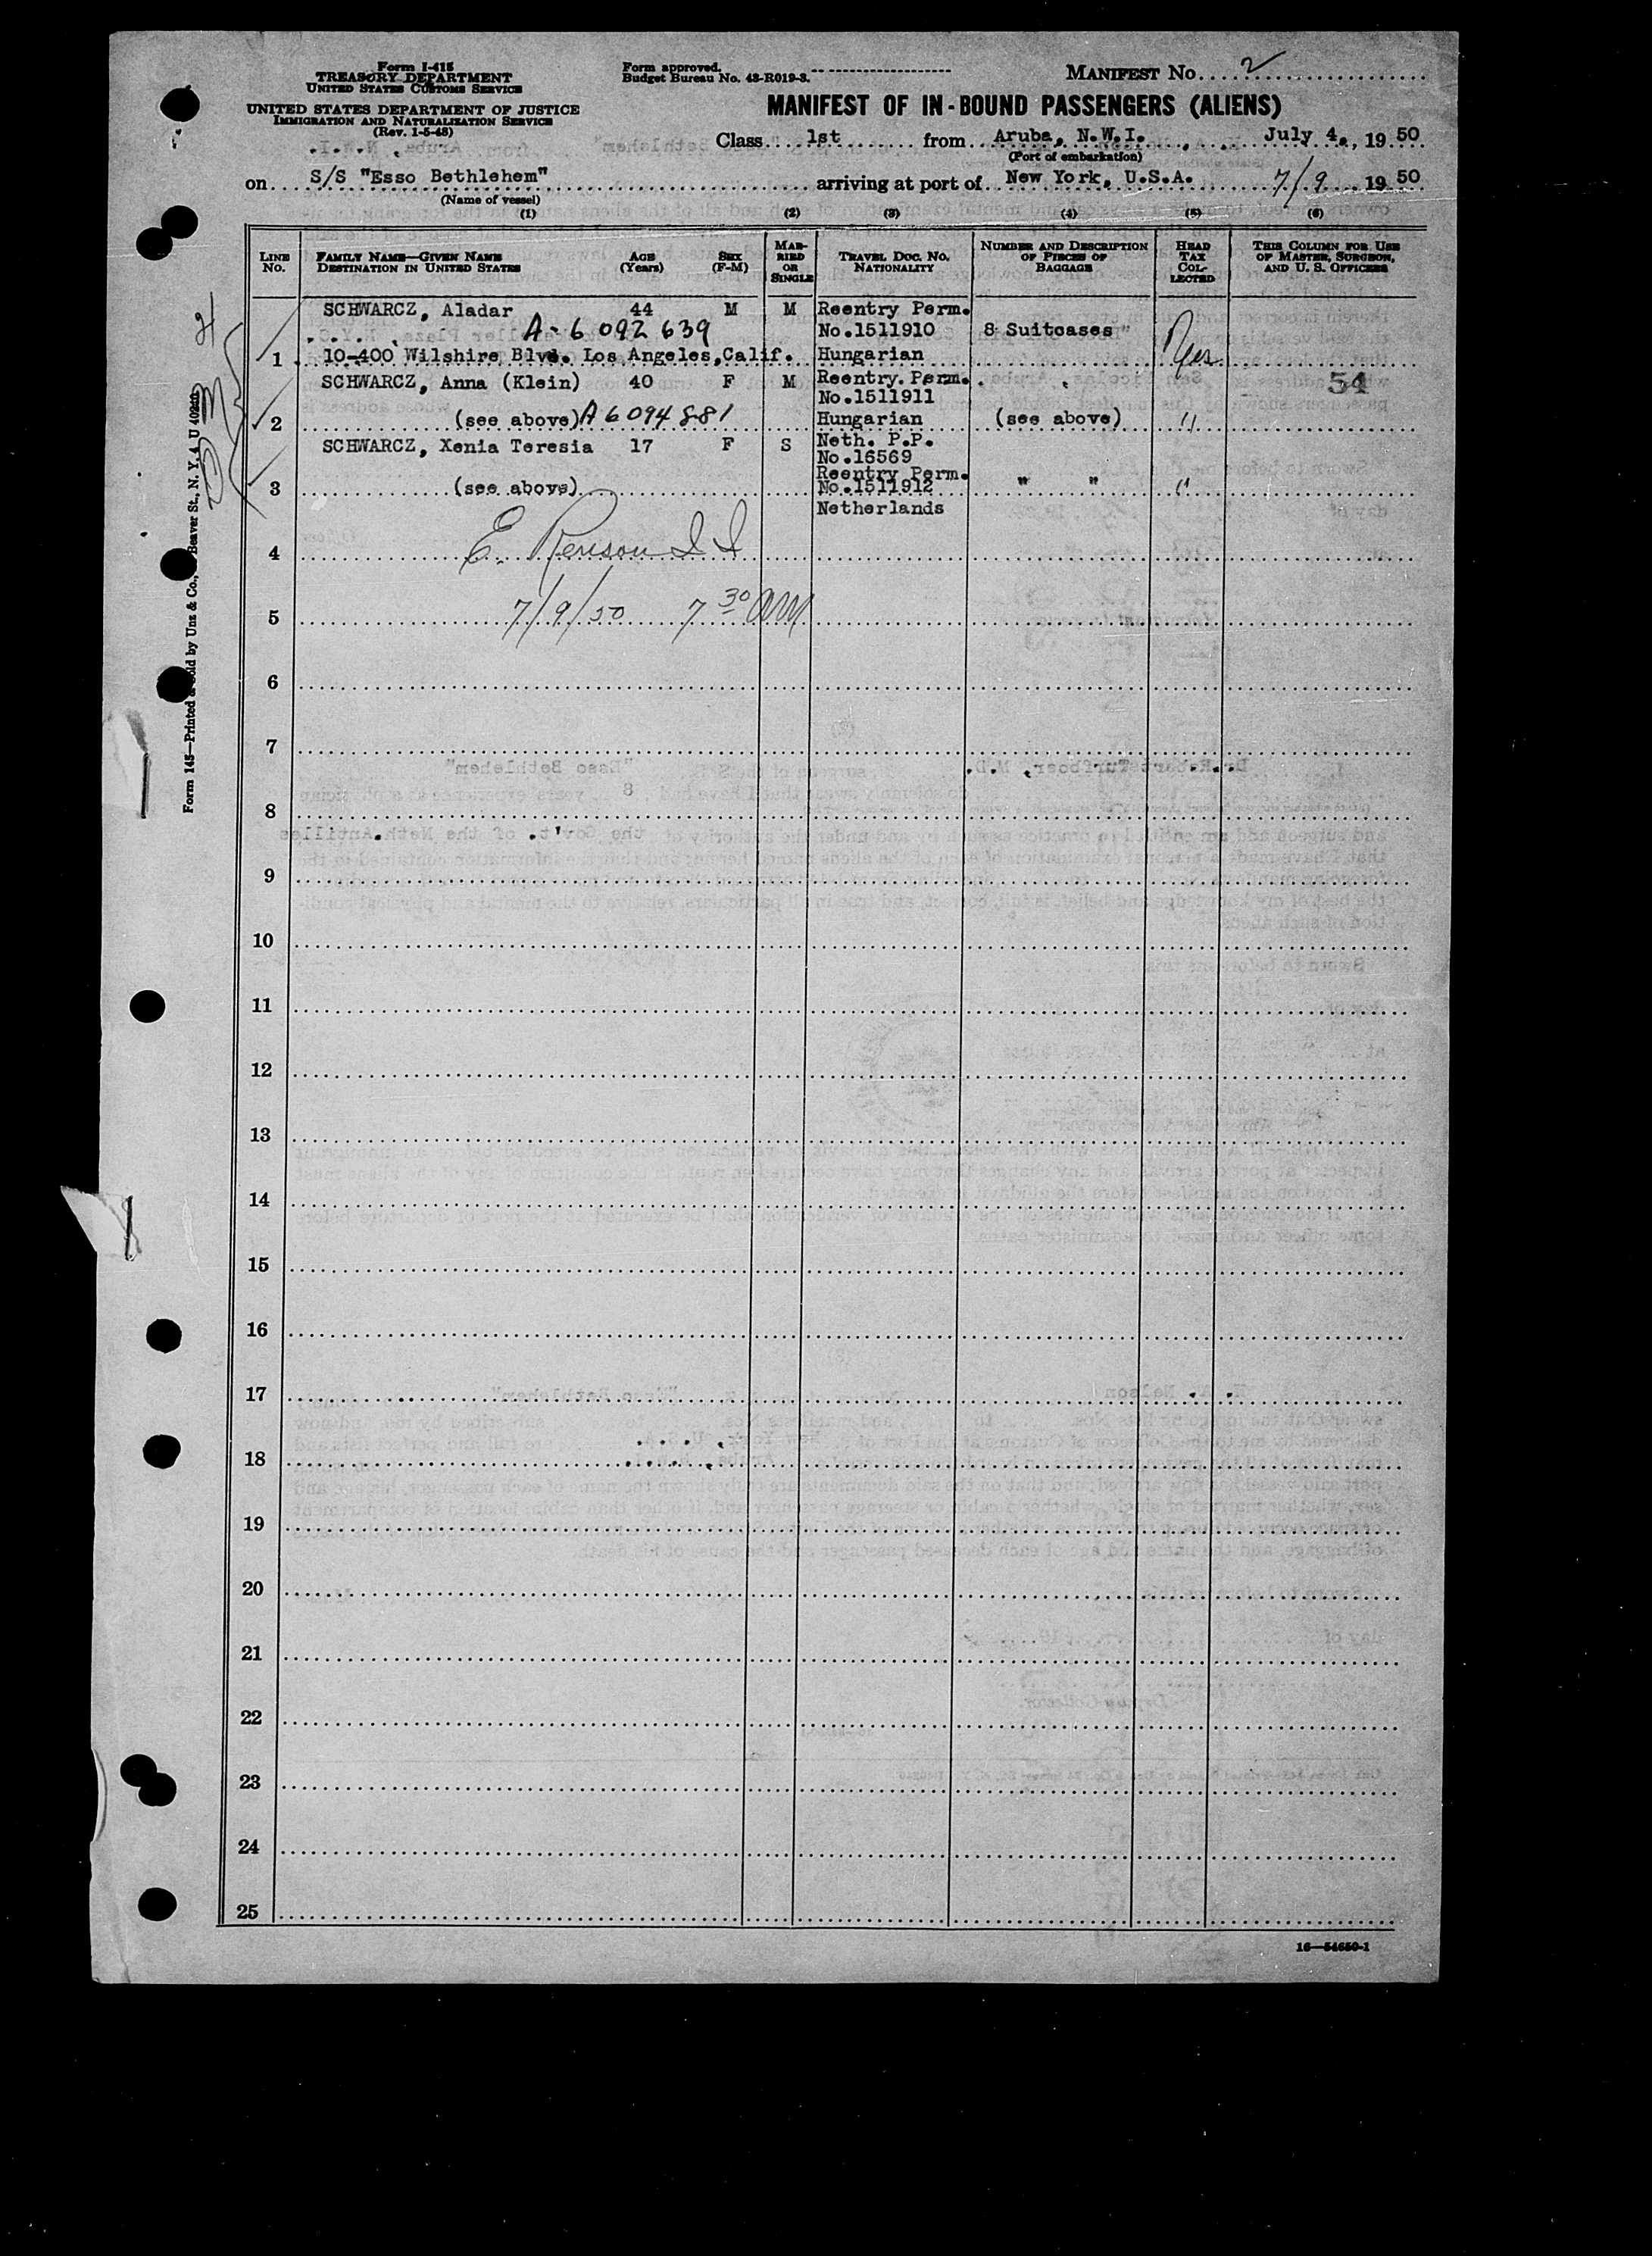 Form I-415
TREASURY DEPARTMENT
UNITED STATES CUSTOMS SERVICE
UNITED STATES DEPARTMENT OF JUSTICE
IMMIGRATION AND NATURALIZATION SERVICE
(Rev. 1-5-48)
Form approved.
Budget Bureau No. 43-R019-3.
MANIFEST No. 2
MANIFEST OF IN-BOUND PASSENGERS (ALIENS)
Class 1st from Aruba, N.W.I. July 4, 1950
(Port of embarkation)
on S/S "Esso Bethlehem" arriving at port of New York, U.S.A. 7/9 1950
(Name of vessel)
(1) (2) (3) (4) (5) (6)
LINE No. FAMILY NAME—GIVEN NAME DESTINATION IN UNITED STATES AGE (Years) SEX (F-M) MARRIED OR SINGLE TRAVEL DOC. NO. NATIONALITY NUMBER AND DESCRIPTION OF PIECES OF BAGGAGE HEAD TAX COLLECTED THIS COLUMN FOR USE OF MASTER, SURGEON, AND U. S. OFFICERS
SCHWARCZ, Aladar 44 M M Reentry Perm.
A-6 092 639 No.1511910 8 Suitcases
1 10-400 Wilshire Blvd. Los Angeles,Calif. Hungarian
SCHWARCZ, Anna (Klein) 40 F M Reentry. Perm. 54
No.1511911
2 (see above) A 6094 881 Hungarian (see above) "
SCHWARCZ, Xenia Teresia 17 F S Neth. P.P.
No.16569
Reentry Perm.
3 (see above) No.1511912 " " "
Netherlands
4 E.
5 7/9/50 7 30 AM
6
7
8
9
10
11
12
13
14
15
16
17
18
19
20
21
22
23
24
25
16—54650-1
Form 145—Printed & Sold by Unz & Co., Beaver St., N. Y. 4